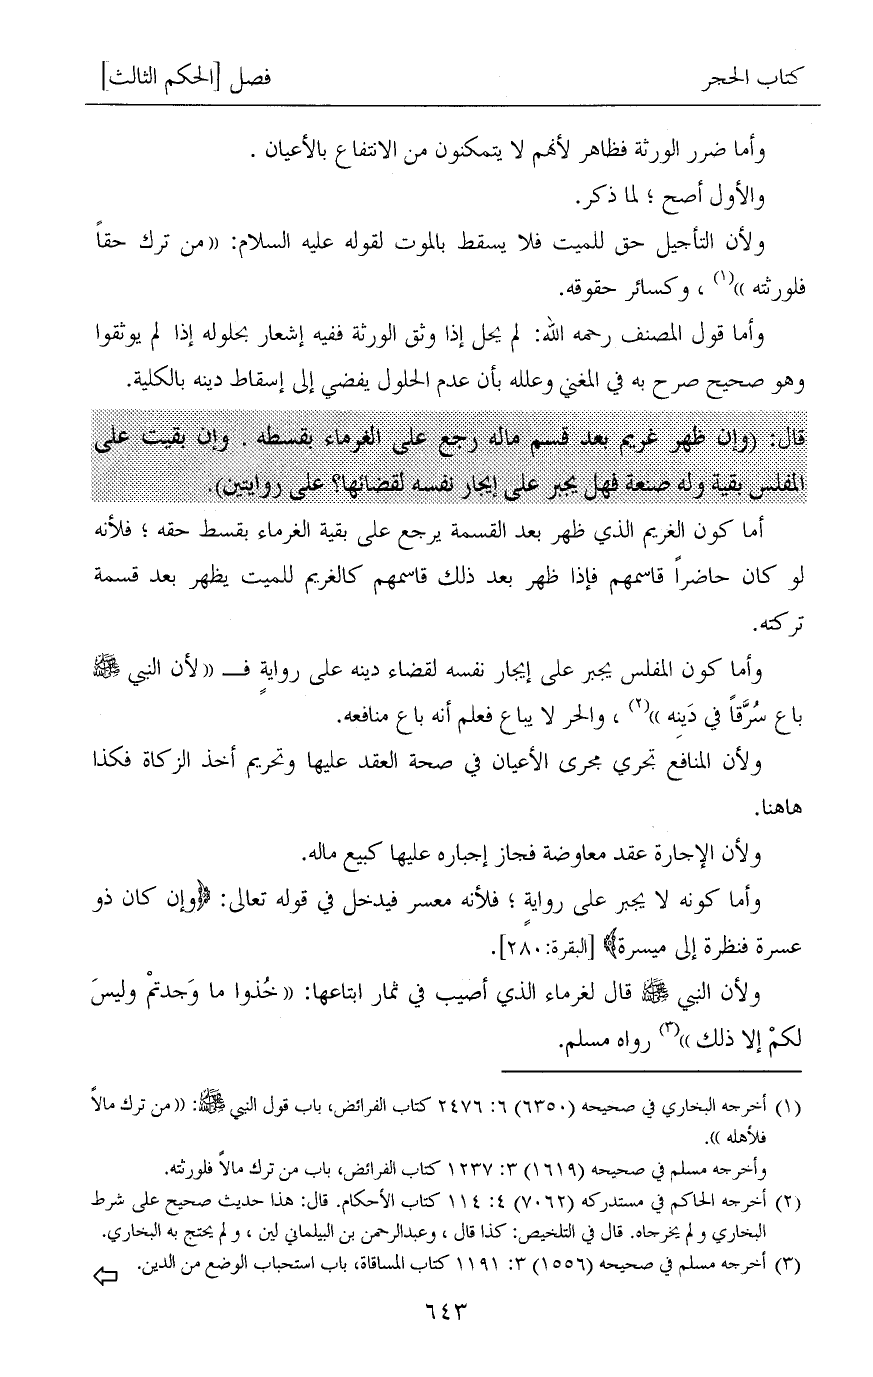 كتاب الحجر
فصل [الحكم الثالث]
وأما ضرر الورثة فظاهر لأنهم لا يتمكنون من الانتفاع بالأعيان .
والأول أصح ؛ لما ذكر.
ولأن التأجيل حق للميت فلا يسقط بالموت لقوله عليه السلام: (( من ترك حقاً
فلورثته ))(١) ، وكسائر حقوقه.
وأما قول المصنف رحمه الله: لم يحل إذا وثق الورثة ففيه إشعار بحلوله إذا لم يوثقوا
وهو صحيح صرح به في المغني وعلله بأن عدم الحلول يفضي إلى إسقاط دينه بالكلية.
قال: (وإن ظهر غريم بعد قسم ماله رجع على الغرماء بقسطه . وإن بقيت على
المفلس بقية وله صنعة فهل يجبر على إيجار نفسه لقضائها؟ على روايتين).
أما كون الغريم الذي ظهر بعد القسمة يرجع على بقية الغرماء بقسط حقه ؛ فلأنه
لو كان حاضراً قاسمهم فإذا ظهر بعد ذلك قاسمهم كالغريم للميت يظهر بعد قسمة
تركته.
وأما كون المفلس يجبر على إيجار نفسه لقضاء دينه على روايةٍ فـــ (( لأن النبي ﷺ
باع سُرَّقاً في دَينِه ))(٢) ، والحر لا يباع فعلم أنه باع منافعه.
ولأن المنافع تجري مجرى الأعيان في صحة العقد عليها وتحريم أخذ الزكاة فكذا
هاهنا.
ولأن الإجارة عقد معاوضة فجاز إجباره عليها كبيع ماله.
وأما كونه لا يجبر على روايةٍ ؛ فلأنه معسر فيدخل في قوله تعالى: ﴿وإن كان ذو
عسرة فنظرة إلى ميسرة﴾ [البقرة: ٢٨٠].
ولأن النبي ﷺ قال لغرماء الذي أصيب في ثمار ابتاعها: (( خُذوا ما وَجدتمْ وليسَ
لكمْ إلا ذلك ))(٣) رواه مسلم.
(١) أخرجه البخاري في صحيحه (٦٣٥٠) ٦: ٢٤٧٦ كتاب الفرائض، باب قول النبي ﷺ: (( من ترك مالاً
فلأهله )).
وأخرجه مسلم في صحيحه (١٦١٩) ٣: ١٢٣٧ كتاب الفرائض، باب من ترك مالاً فلورثته.
(٢) أخرجه الحاكم في مستدركه (٧٠٦٢) ٤: ١١٤ كتاب الأحكام. قال: هذا حديث صحيح على شرط
البخاري ولم يخرجاه. قال في التلخيص: كذا قال ، وعبدالرحمن بن البيلماني لين ، ولم يحتج به البخاري.
(٣) أخرجه مسلم في صحيحه (١٥٥٦) ٣: ١١٩١ كتاب المساقاة، باب استحباب الوضع من الدين. ⇦
٦٤٣